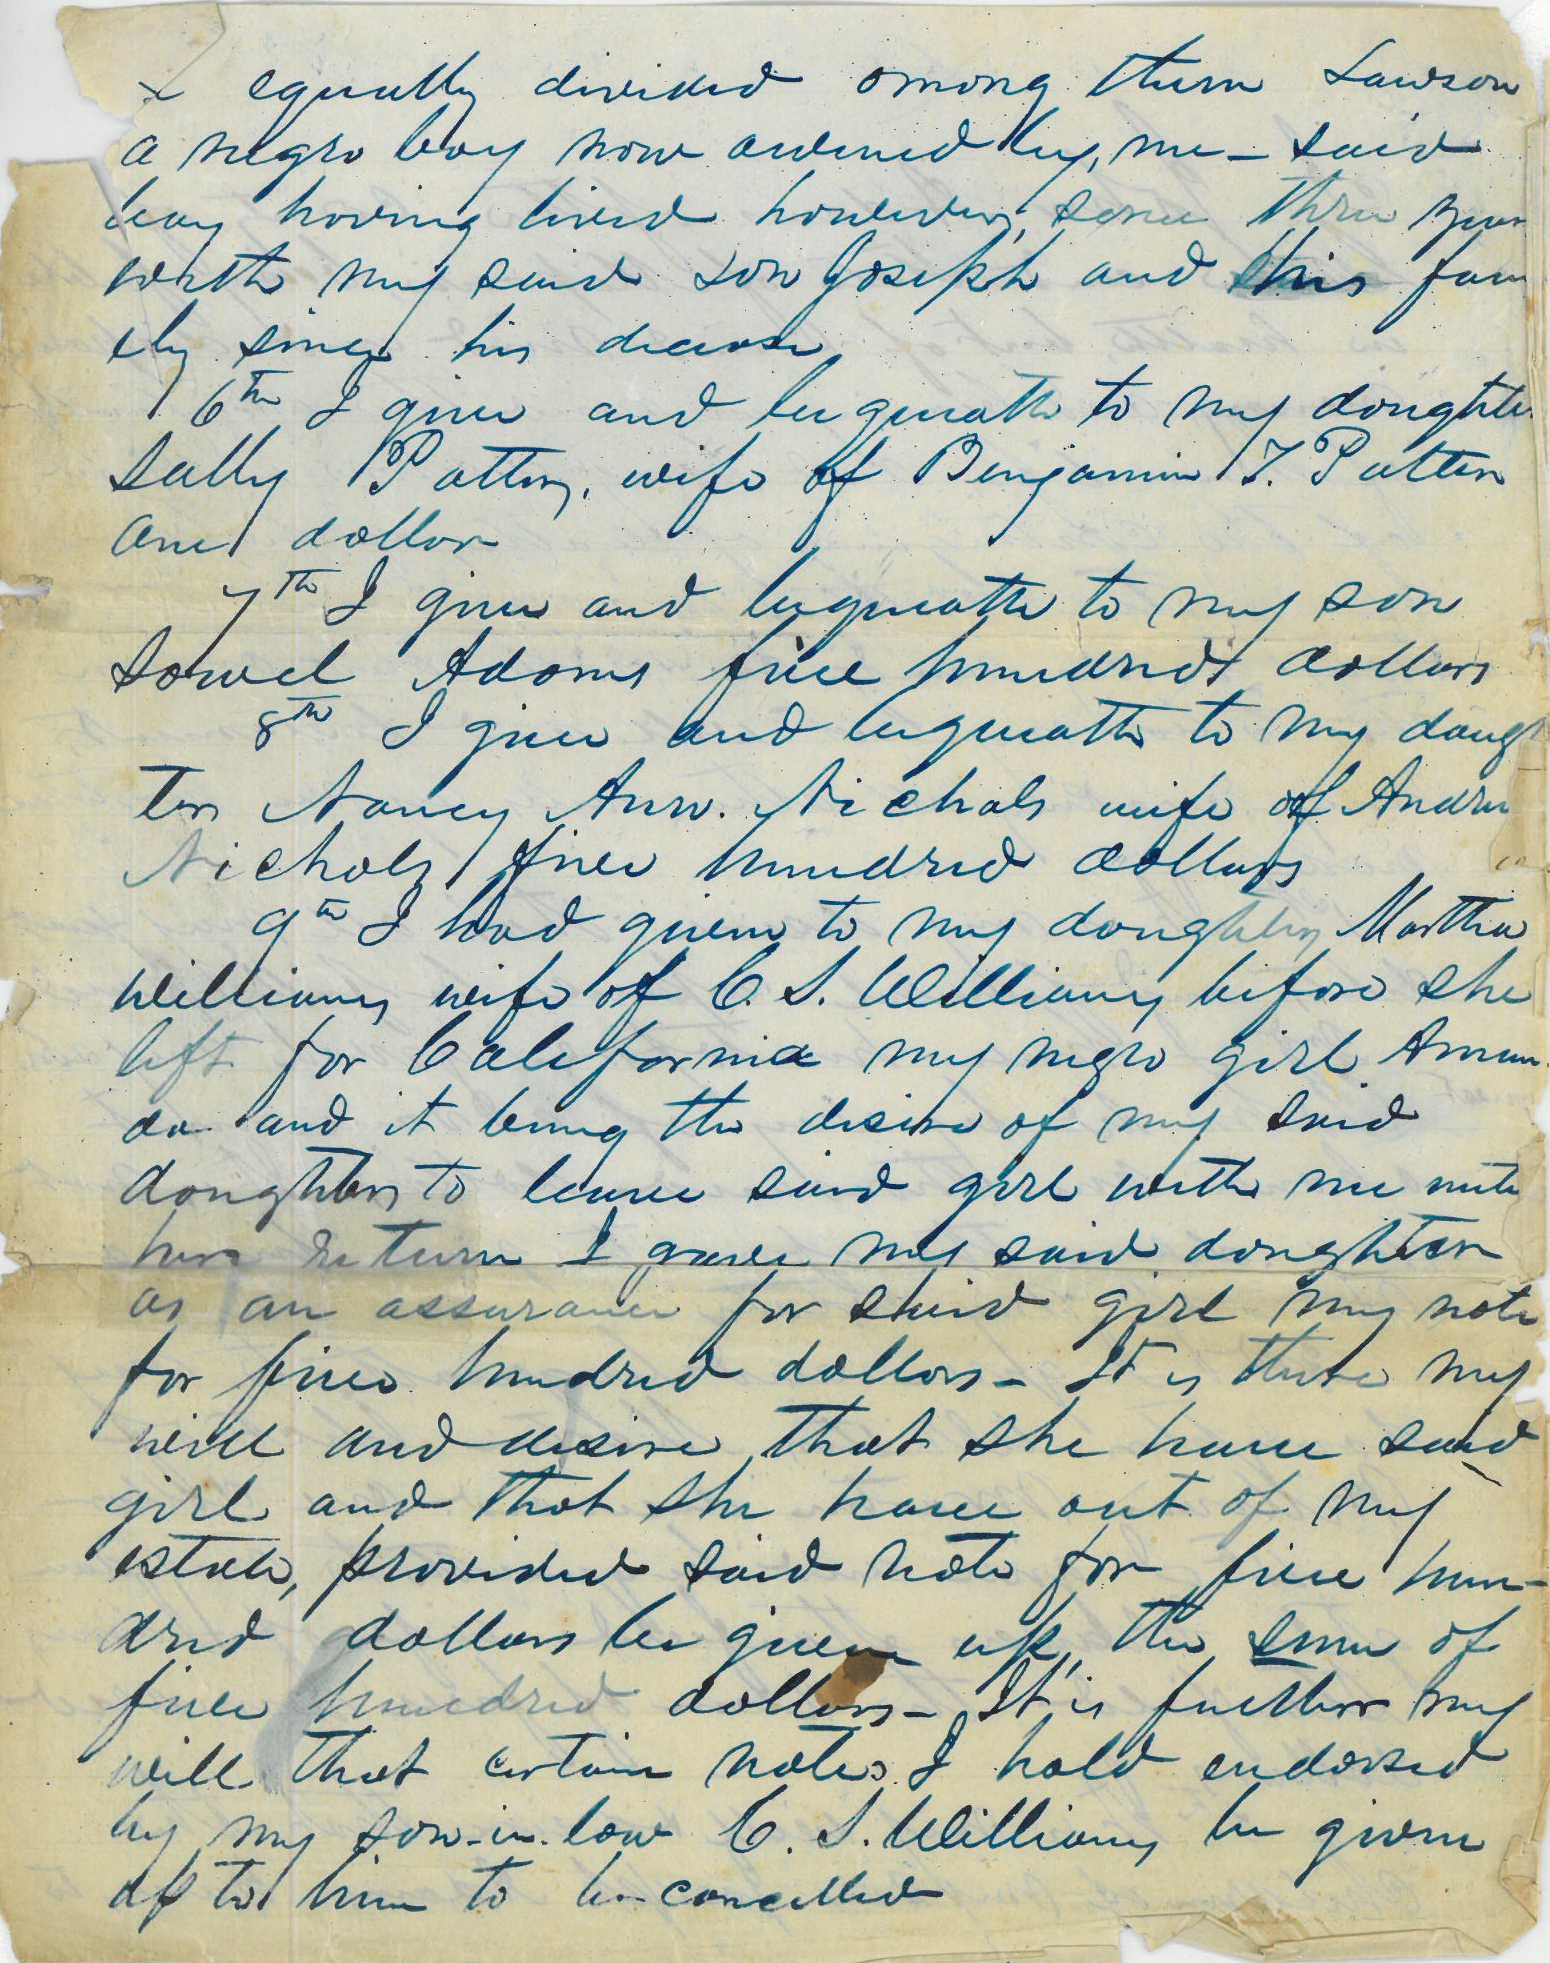 & equally divided among them Lawson
a negro boy now owened by, me - said
boy having lived however, some three year
with my said son Joseph and this fam
ely since his decease
6th I give and bequeath to my doughter
Sally Patton, wife of Benjamin T. Patton
one dollar
7th I give and bequeath to my son
Sowel Adams five hundred dollars
8th I give and bequeath to my dough
ter Nancy Ann. Nichols wife of Andrew
Nichols five hundred dollars
9th I had given to my doughter Martha
Williams wife of C. S. Williams before she
left for California my negro girl Aman
da and it being the desire of my said
doughter to leave said girl with me until
her return I gave my said doughter
as an assurance for said girl my note
for five hundred dollars - It is there my
will and desire that she have said
girl and that she have out of my
estate, provided said note for five hun-
dred dollars be given up, the sum of
five hundred dollars - It is further my
will that certain notes I hold endorsed
by my son-in-law C. S. Williams be given
up to him to be cancelled